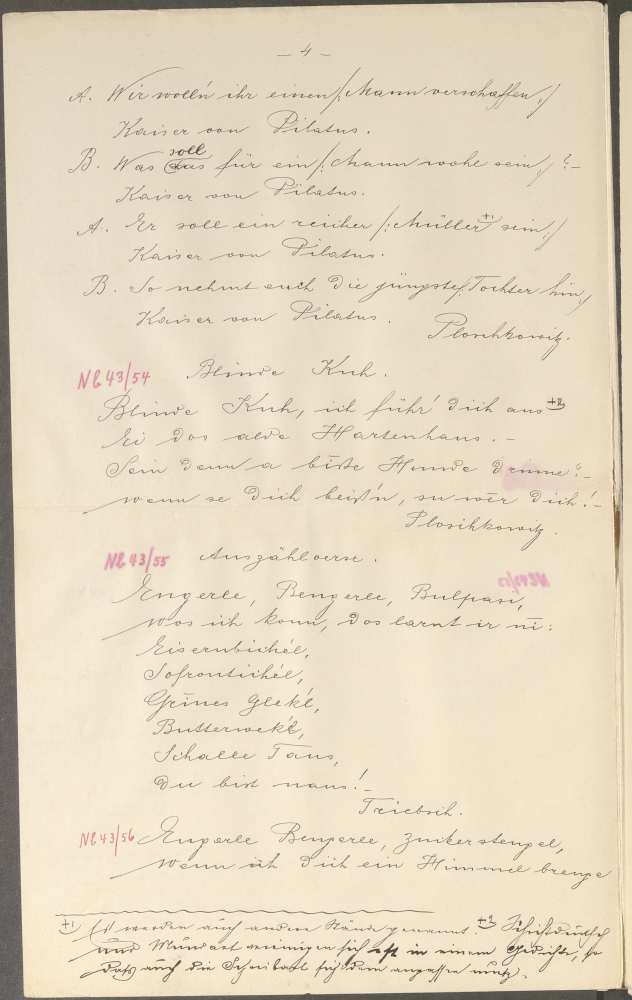 – 4 –
A. Wir woll'n ihr einen /: Mann verschaffen, :/
Kaiser von Pilatus.
B. Was soll für ein /: Mann wohl sein, :/ ?–
Kaiser von Pilatus.
A. Er soll ein reicher /: Müller +1 sein, :/
Kaiser von Pilatus.
B. So nehmt euch die jüngste /: Tochter hin, :/
Kaiser von Pilatus.
Ploschkowitz.
Nl 43/54 Blinde Kuh.
Blinde Kuh, ich führ' dich aus +2
Ei dos alde Hartenhaus. –
Sein denn a biste Hunde drinne? –
wenn se dich beiss'n, su wër dich! –
Ploschkowitz.
Nl 43/55 Auszählverse.
Engerle, Bengerle, Bulpasi,
wos ich konn, dos larnt ir ni:
Eisernbichél,
Sofrontichél,
Grines Glekl,
Butterwekl,
Schalle Taus,
Du bist naus! –
Triebsch.
Nl 43/56 Engerle Bengerle, zuikerstengel,
wenn ich dich ein Himmel brenge
+1 Es werden auch andere Stände genannt. +2 Schriftdeutsch
und Mundart vereinigen sich oft in einem Gedichte, so
dass auch die Schreibart sich dem anpassen muss.